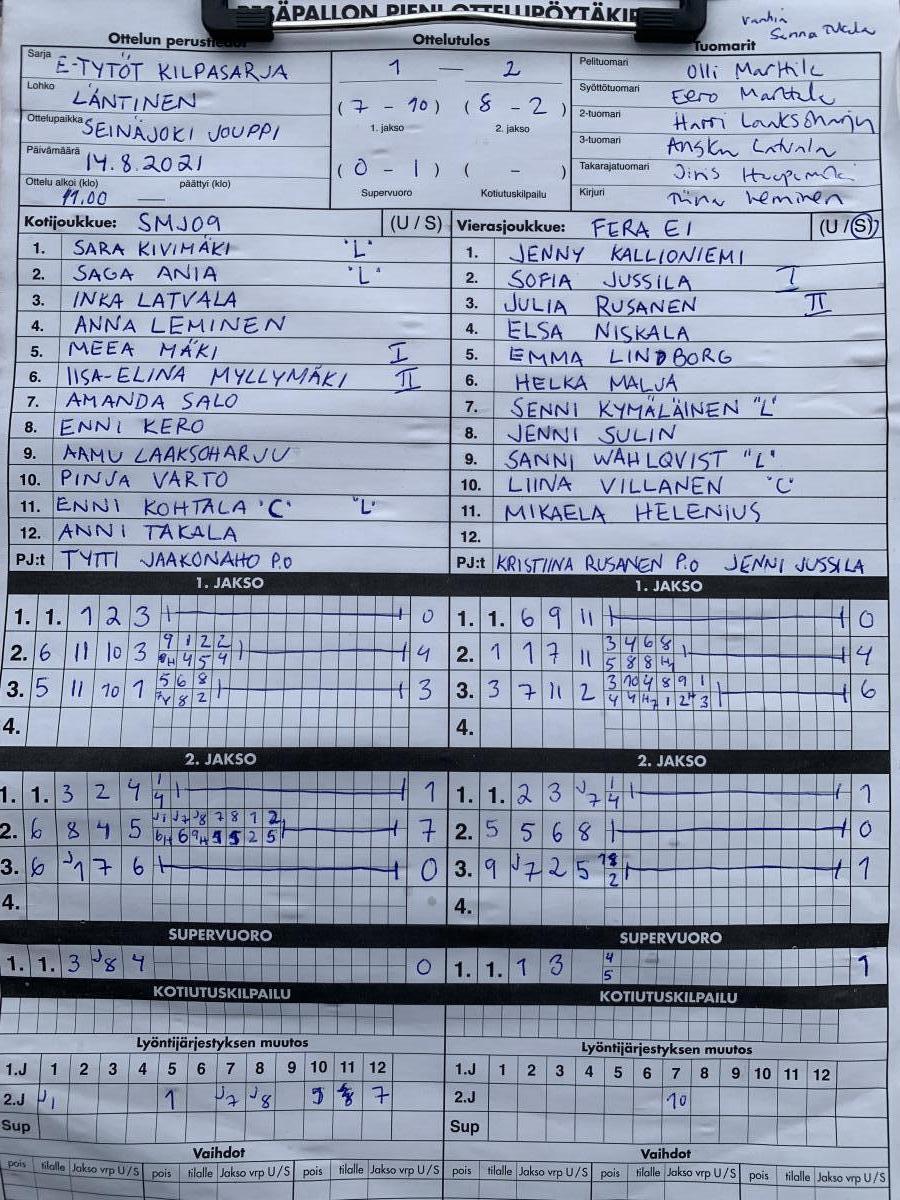 PESÄPALLON PIENI OTTELUPÖYTÄKIR
Vanhin
Sanna
Ottelun perustiedot
Ottelutulos
Tuomarit
Sarja E-TYTÖT KILPASARJA
1 — 2
Pelituomari Olli Marttila
Lohko LÄNTINEN
(7 - 10) (8 - 2)
Syöttötuomari Eero Marttala
1. jakso 2. jakso
Ottelupaikka SEINÄJOKI JOUPPI
2-tuomari Harri Laaksoharju
Päivämäärä 14.8.2021
(0 - 1) ( - )
3-tuomari Latvala
Ottelu alkoi (klo) 11.00 päättyi (klo) —
Supervuoro Kotiutuskilpailu
Takarajatuomari
Kirjuri Leminen
Kotijoukkue: SMJ09 (U / S)
Vierasjoukkue: FERA E1 (U / S)
1. SARA KIVIMÄKI "L"
1. JENNY KALLIONIEMI
2. SAGA ANIA "L"
2. SOFIA JUSSILA I
3. INKA LATVALA
3. JULIA RUSANEN II
4. ANNA LEMINEN
4. ELSA NISKALA
5. MEEA MÄKI I
5. EMMA LINDBORG
6. IISA-ELINA MYLLYMÄKI II
6. HELKA MALJA
7. AMANDA SALO
7. SENNI KYMÄLÄINEN "L"
8. ENNI KERO
8. JENNI SULIN
9. AAMU LAAKSOHARJU
9. SANNI WAHLQVIST "L"
10. PINJA VARTO
10. LIINA VILLANEN "C"
11. ENNI KOHTALA "C" "L"
11. MIKAELA HELENIUS
12. ANNI TAKALA
12.
PJ:t TYTTI JAAKONAHO P.O
PJ:t KRISTIINA RUSANEN P.O JENNI JUSSILA
1. JAKSO
1. JAKSO
1. 1. 1 2 3 0
1. 1. 6 9 11 0
2. 6 11 10 3 9 1 2 2 4
4 5 4
2. 1 1 7 11 3 4 6 8 4
5 8 8 H4
3. 5 11 10 1 5 6 8 3
8 2
3. 3 7 11 2 3 10 4 8 9 1 6
4 4 H7 1 2H 3
4.
4.
2. JAKSO
2. JAKSO
1. 1. 3 2 4 1 1
4
1. 1. 2 3 J7 1 1
4
2. 6 8 4 5 J1 J7 J8 7 8 1 2 7
6H 6 9H 5 5 2 5
2. 5 5 6 8 0
3. 6 J1 7 6 0
3. 9 J7 2 5 1
2
4.
4.
SUPERVUORO
SUPERVUORO
1. 1. 3 J8 4 0
1. 1. 1 3 4 1
5
KOTIUTUSKILPAILU
KOTIUTUSKILPAILU
Lyöntijärjestyksen muutos
Lyöntijärjestyksen muutos
1.J 1 2 3 4 5 6 7 8 9 10 11 12
1.J 1 2 3 4 5 6 7 8 9 10 11 12
2.J J1 1 J7 J8 7
2.J 10
Sup
Sup
Vaihdot
Vaihdot
pois tilalle Jakso vrp U/S pois tilalle Jakso vrp U/S pois tilalle Jakso vrp U/S
pois tilalle Jakso vrp U/S pois tilalle Jakso vrp U/S pois tilalle Jakso vrp U/S